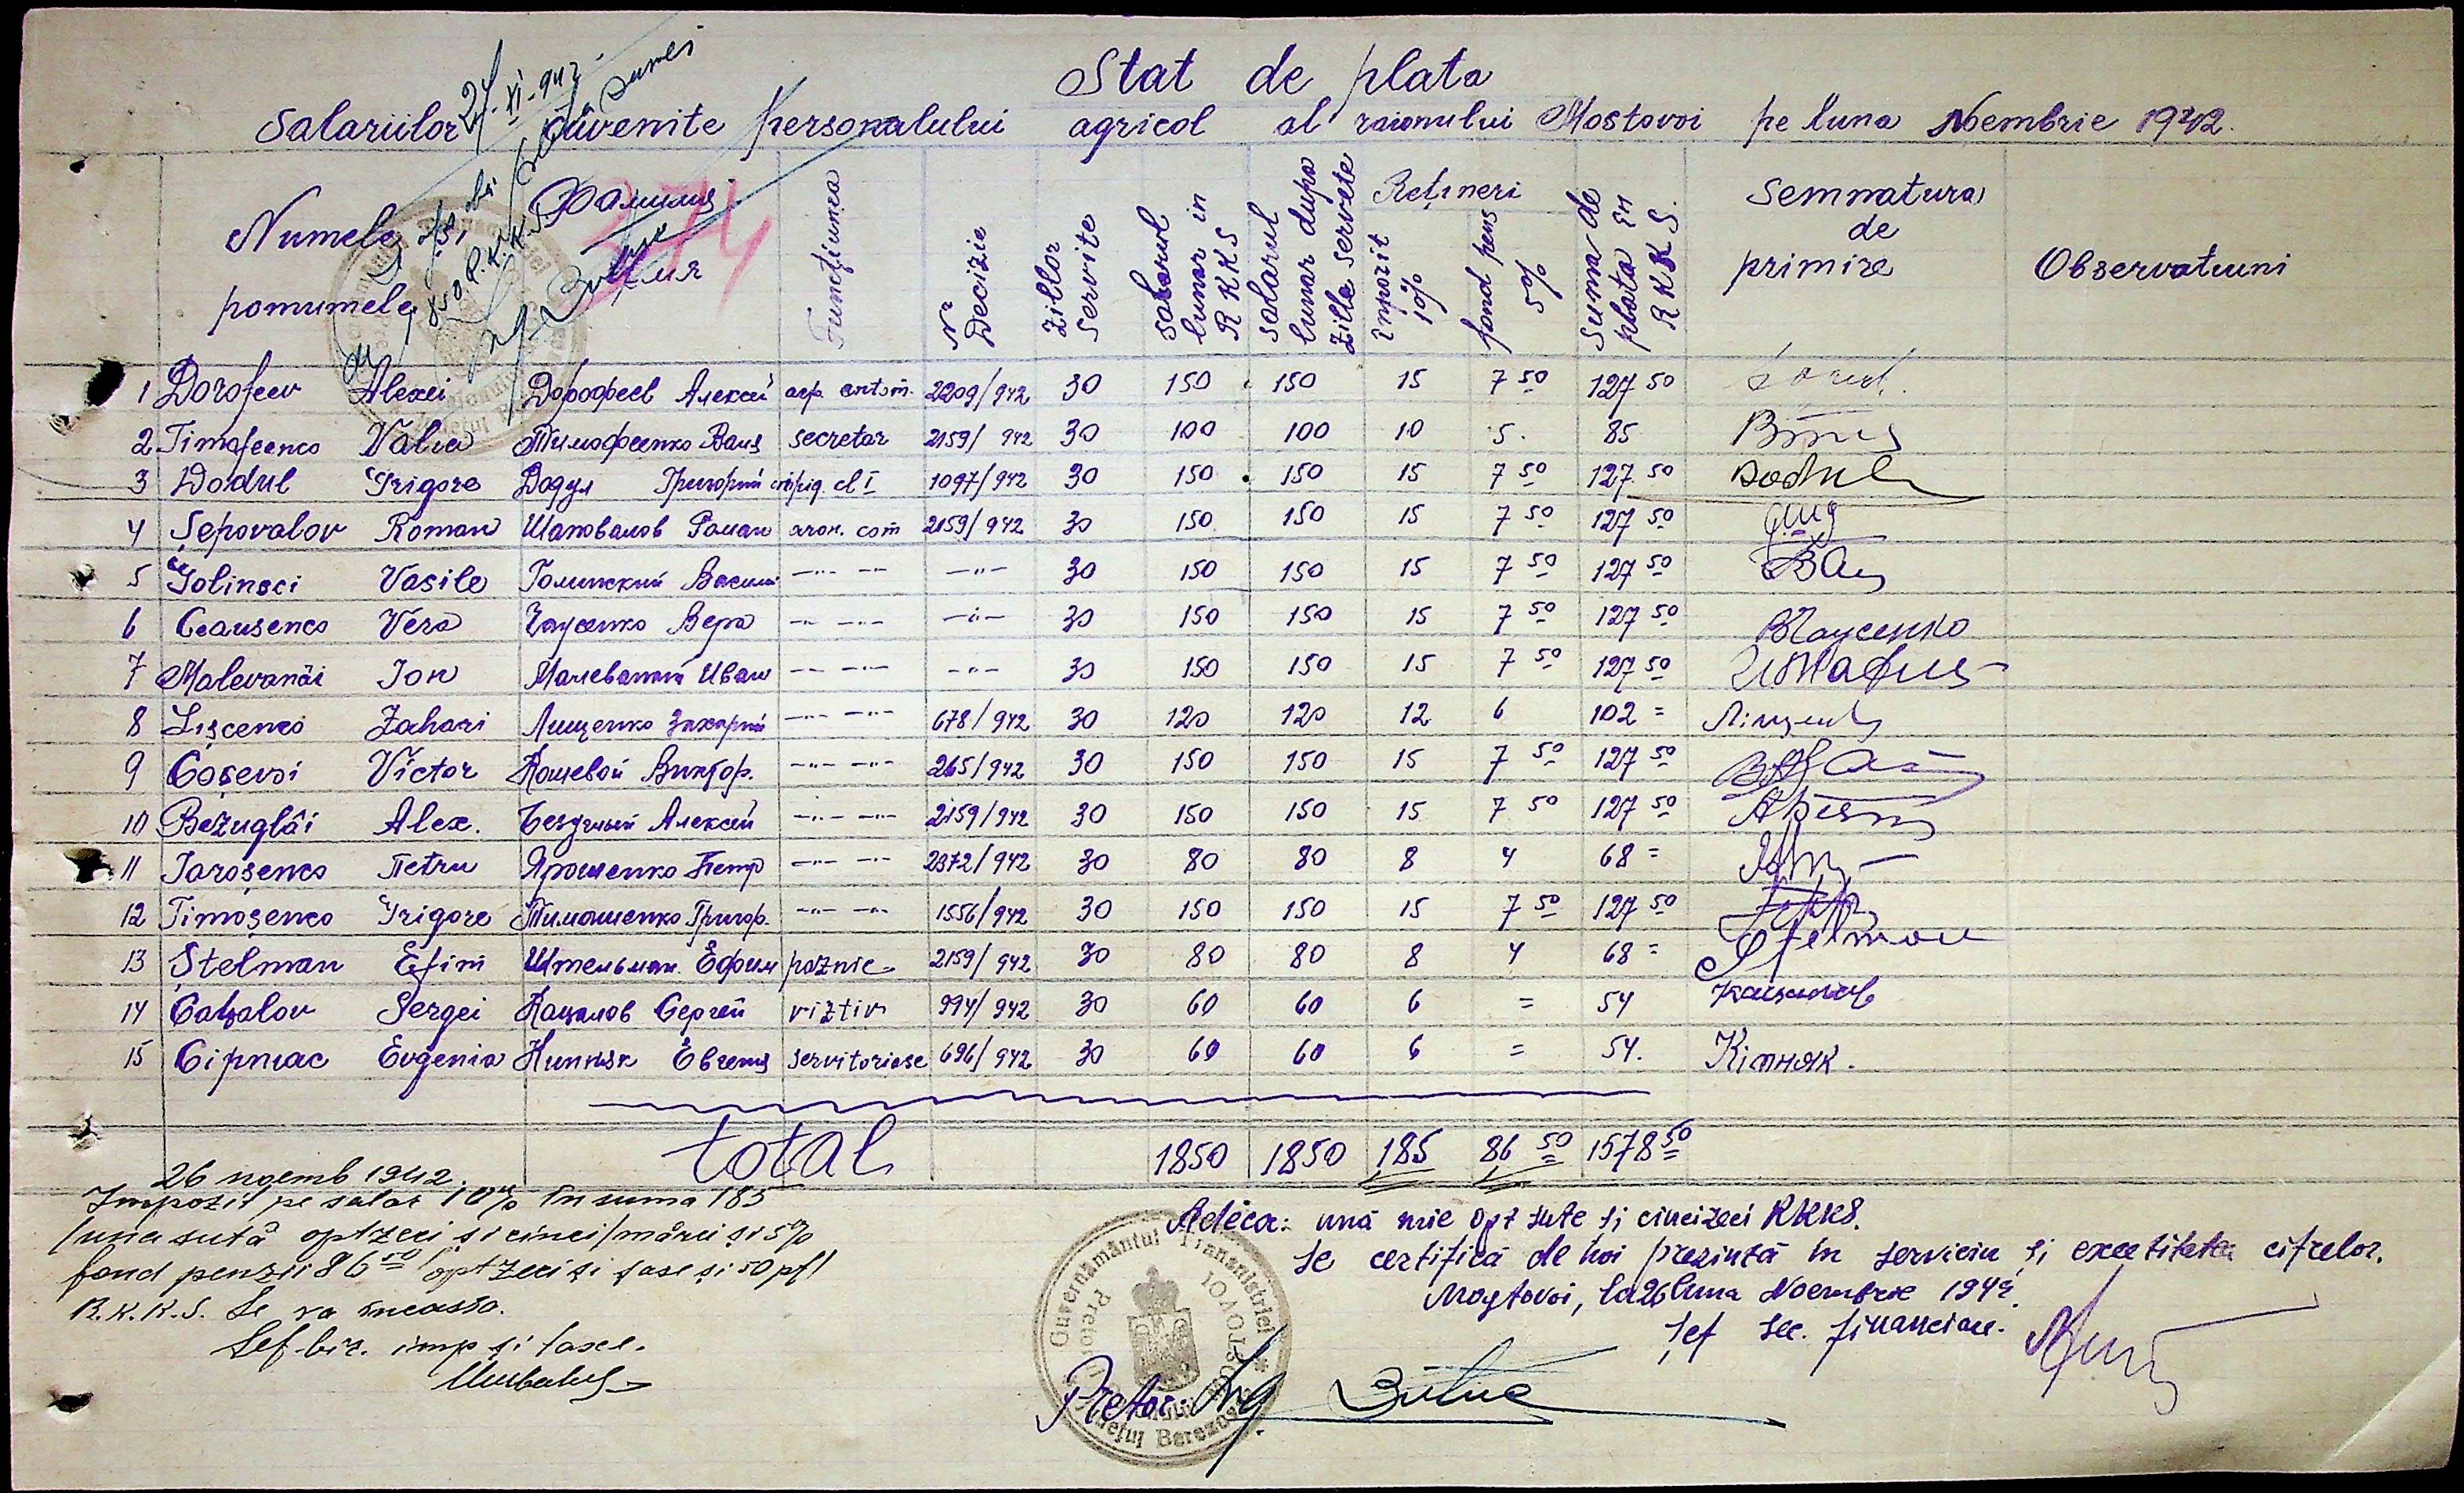 Stat de plata
Salariilor cuvenite personalului agricol al raionului Mostovoi pe luna Noembrie 1942.
24-XI-942
374
Numele si pomumele
Фамилия
Имя
Funcțiunea
Nr Decizie
Zillor servite
Salarul lunar in RKKS
Salarul lunar dupa zille servete
Rețineri
Impozit 10%
fond pens 5%
Suma de plata in RKKS.
Semnatura de primire
Observatiuni
1 Dorofeev Alexei Дорофеев Алексей agr. 2209/942 30 150 150 15 7 50 127 50
2 Timofeenco Valia Тимофеенко Валя secretar 2159/942 30 100 100 10 5. 85
3 Dodul Grigore Додул Григорий cl I 1097/942 30 150 150 15 7 50 127 50 Dodul
4 Șepovalov Roman Шаповалов Роман agron. com 2159/942 30 150 150 15 7 50 127 50
5 Golinsci Vasile Голинский Васили -"- -"- -"- 30 150 150 15 7 50 127 50
6 Ceausenco Vera Чаусенко Вера -"- -"- -"- 30 150 150 15 7 50 127 50 ВЧаусенко
7 Malevanâi Ion Малеваный Иван -"- -"- -"- 30 150 150 15 7 50 127 50
8 Lișcenco Zahari Лищенко Захарий -"- -"- 678/942 30 120 120 12 6 102 =
9 Coșevoi Victor Кошевой Виктор. -"- -"- 265/942 30 150 150 15 7 50 127 50
10 Bezuglâi Alex. Безуглый Алексей -"- -"- 2159/942 30 150 150 15 7 50 127 50
11 Iaroșenco Petru Ярошенко Петр -"- -"- 2372/942 30 80 80 8 4 68 =
12 Timoșenco Grigore Тимошенко Григор. -"- -"- 1556/942 30 150 150 15 7 50 127 50
13 Ștelman Efim Штельман Ефим paznic 2159/942 30 80 80 8 4 68 = Stelman
14 Cațalov Sergei Кацалов Сергей viztiv 994/942 30 60 60 6 = 54 Кацалов
15 Cipniac Evgenia Кипняк Евгения servitoriase 696/942 30 60 60 6 = 54. Кіпняк.
total 1850 1850 185 86 50 1578 50
26 noemb 1942.
Impozit pe salar 10% în suma 185
/una sută optzeci și cinci/mărci și 5%
fond penzii 86 50 /optzeci și șase și 50 pf/
R.K.K.S. se va încassa.
Șef. bir. imp și taxe.
Adeca: una mie opt sute și cincizeci RKKS.
Se certifică de noi prezintă în serviciu și exactitatea cifrelor.
Mostovoi, la 26 luna Noembrie 1942.
Șef sec. financiar.
Pretor. Ing
Guvernământul Transnistriei
Pretor
MOSTOVOI
Județul Berezov